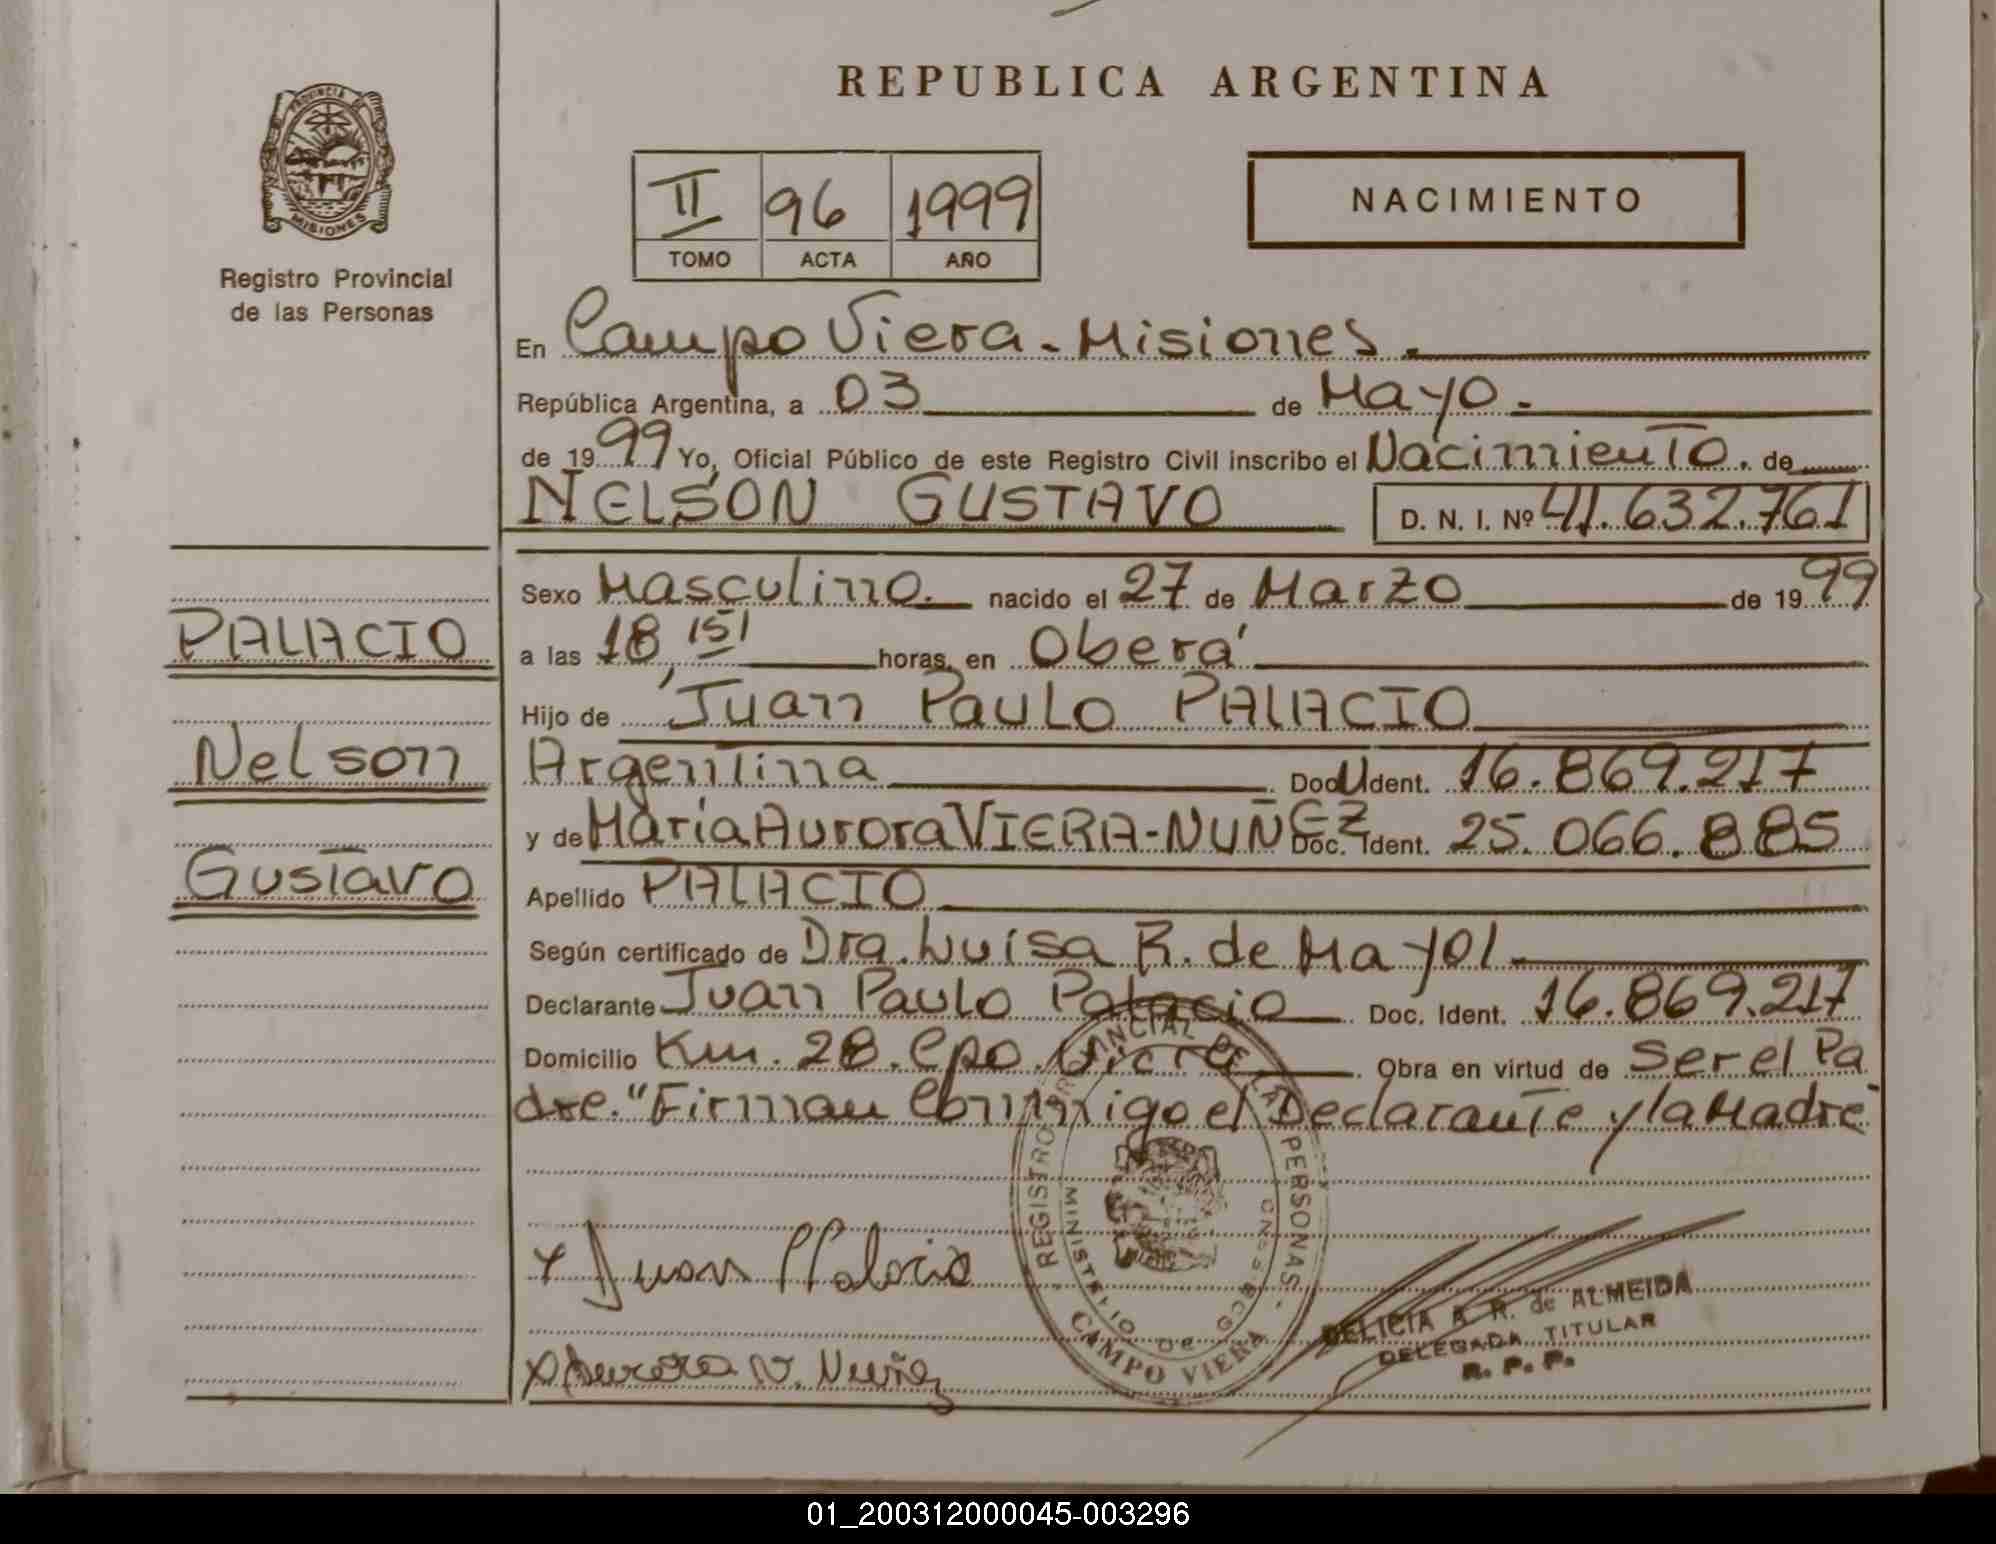 PROVINCIA DE
MISIONES
Registro Provincial
de las Personas
PALACIO
Nelson
Gustavo
REPUBLICA ARGENTINA
II 96 1999
TOMO ACTA AÑO
NACIMIENTO
En Campo Viera - Misiones.
República Argentina, a 03 de Mayo.
de 1999 Yo, Oficial Público de este Registro Civil inscribo el Nacimiento. de
NELSON GUSTAVO D. N. I. Nº 41.632.761
Sexo Masculino. nacido el 27 de Marzo de 1999
a las 18, 15 horas, en Oberá
Hijo de Juan Paulo PALACIO
Argentina Doc. Ident. 16.869.217
y de María Aurora VIERA-NUÑEZ Doc. Ident. 25.066.885
Apellido PALACIO
Según certificado de Dra. Luisa R. de Mayol
Declarante Juan Paulo Palacio Doc. Ident. 16.869.217
Domicilio Km. 28. Cpo. Viera Obra en virtud de Ser el Pa
dre." Firman Conmigo el Declarante y la Madre
REGISTRO PROVINCIAL DE LAS PERSONAS
MINISTERIO DE GOB
CAMPO VIERA
x Juan P Palacio
x Aurora V. Nuñez
DELICIA A. R. de ALMEIDA
DELEGADA TITULAR
R. P. P.
01_200312000045-003296